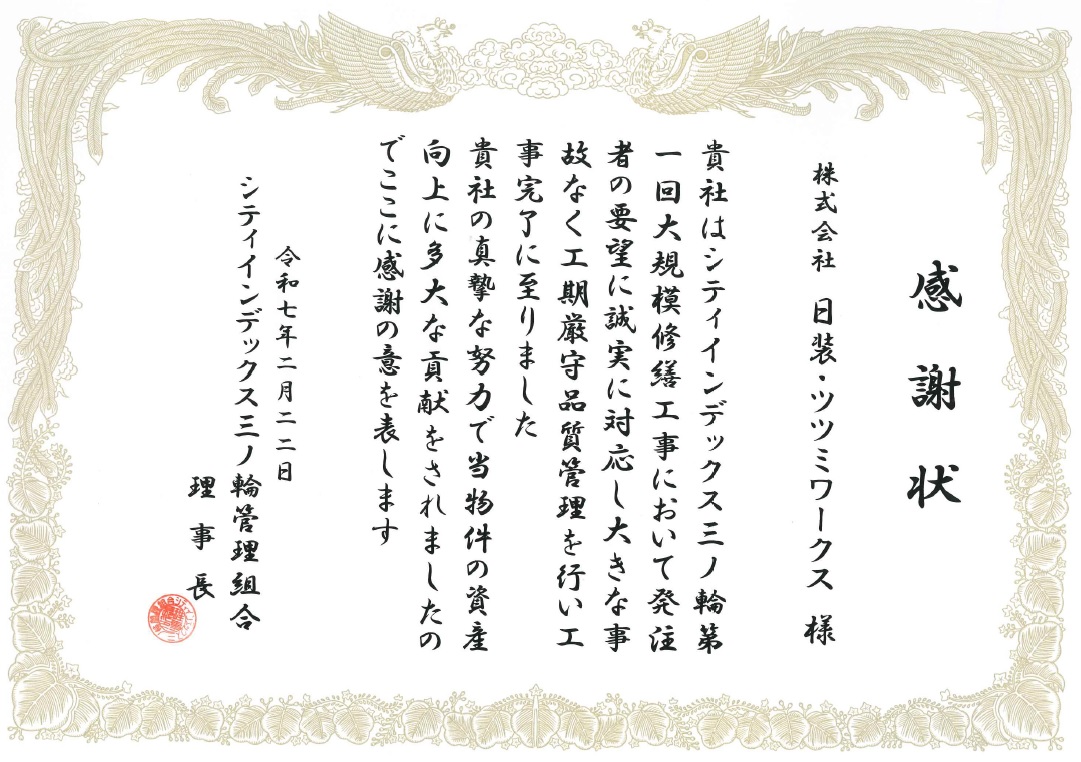 感謝状
株式会社 日装・ツツミワークス 様
貴社はシティインデックス三ノ輪第
一回大規模修繕工事において発注
者の要望に誠実に対応し大きな事
故なく工期厳守品質管理を行い工
事完了に至りました
貴社の真摯な努力で当物件の資産
向上に多大な貢献をされましたの
でここに感謝の意を表します
令和七年二月二二日
シティインデックス三ノ輪管理組合
理事長